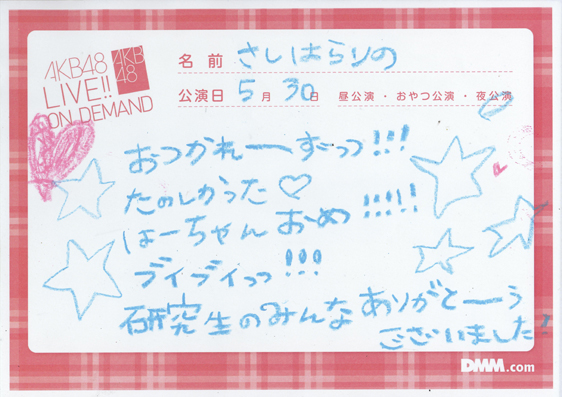 AKB48
LIVE!!
ON DEMAND
AKB
48
名前 さしはらりの
公演日 5月30日 昼公演・おやつ公演・夜公演
おつかれーずっっ!!!
たのしかった♡
はーちゃんおめっ!!!!!
ブイブイっっ!!!
研究生のみんなありがとーう
ございました!
DMM.com